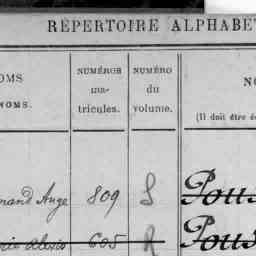 RÉPERTOIRE ALPHABE
OMS
NOMS.
NUMÉROS
ma-
tricules.
NUMÉRO
du
volume.
NO
(Il doit être é
mand Auge 809 S Pous
Alexis 605 R Pous